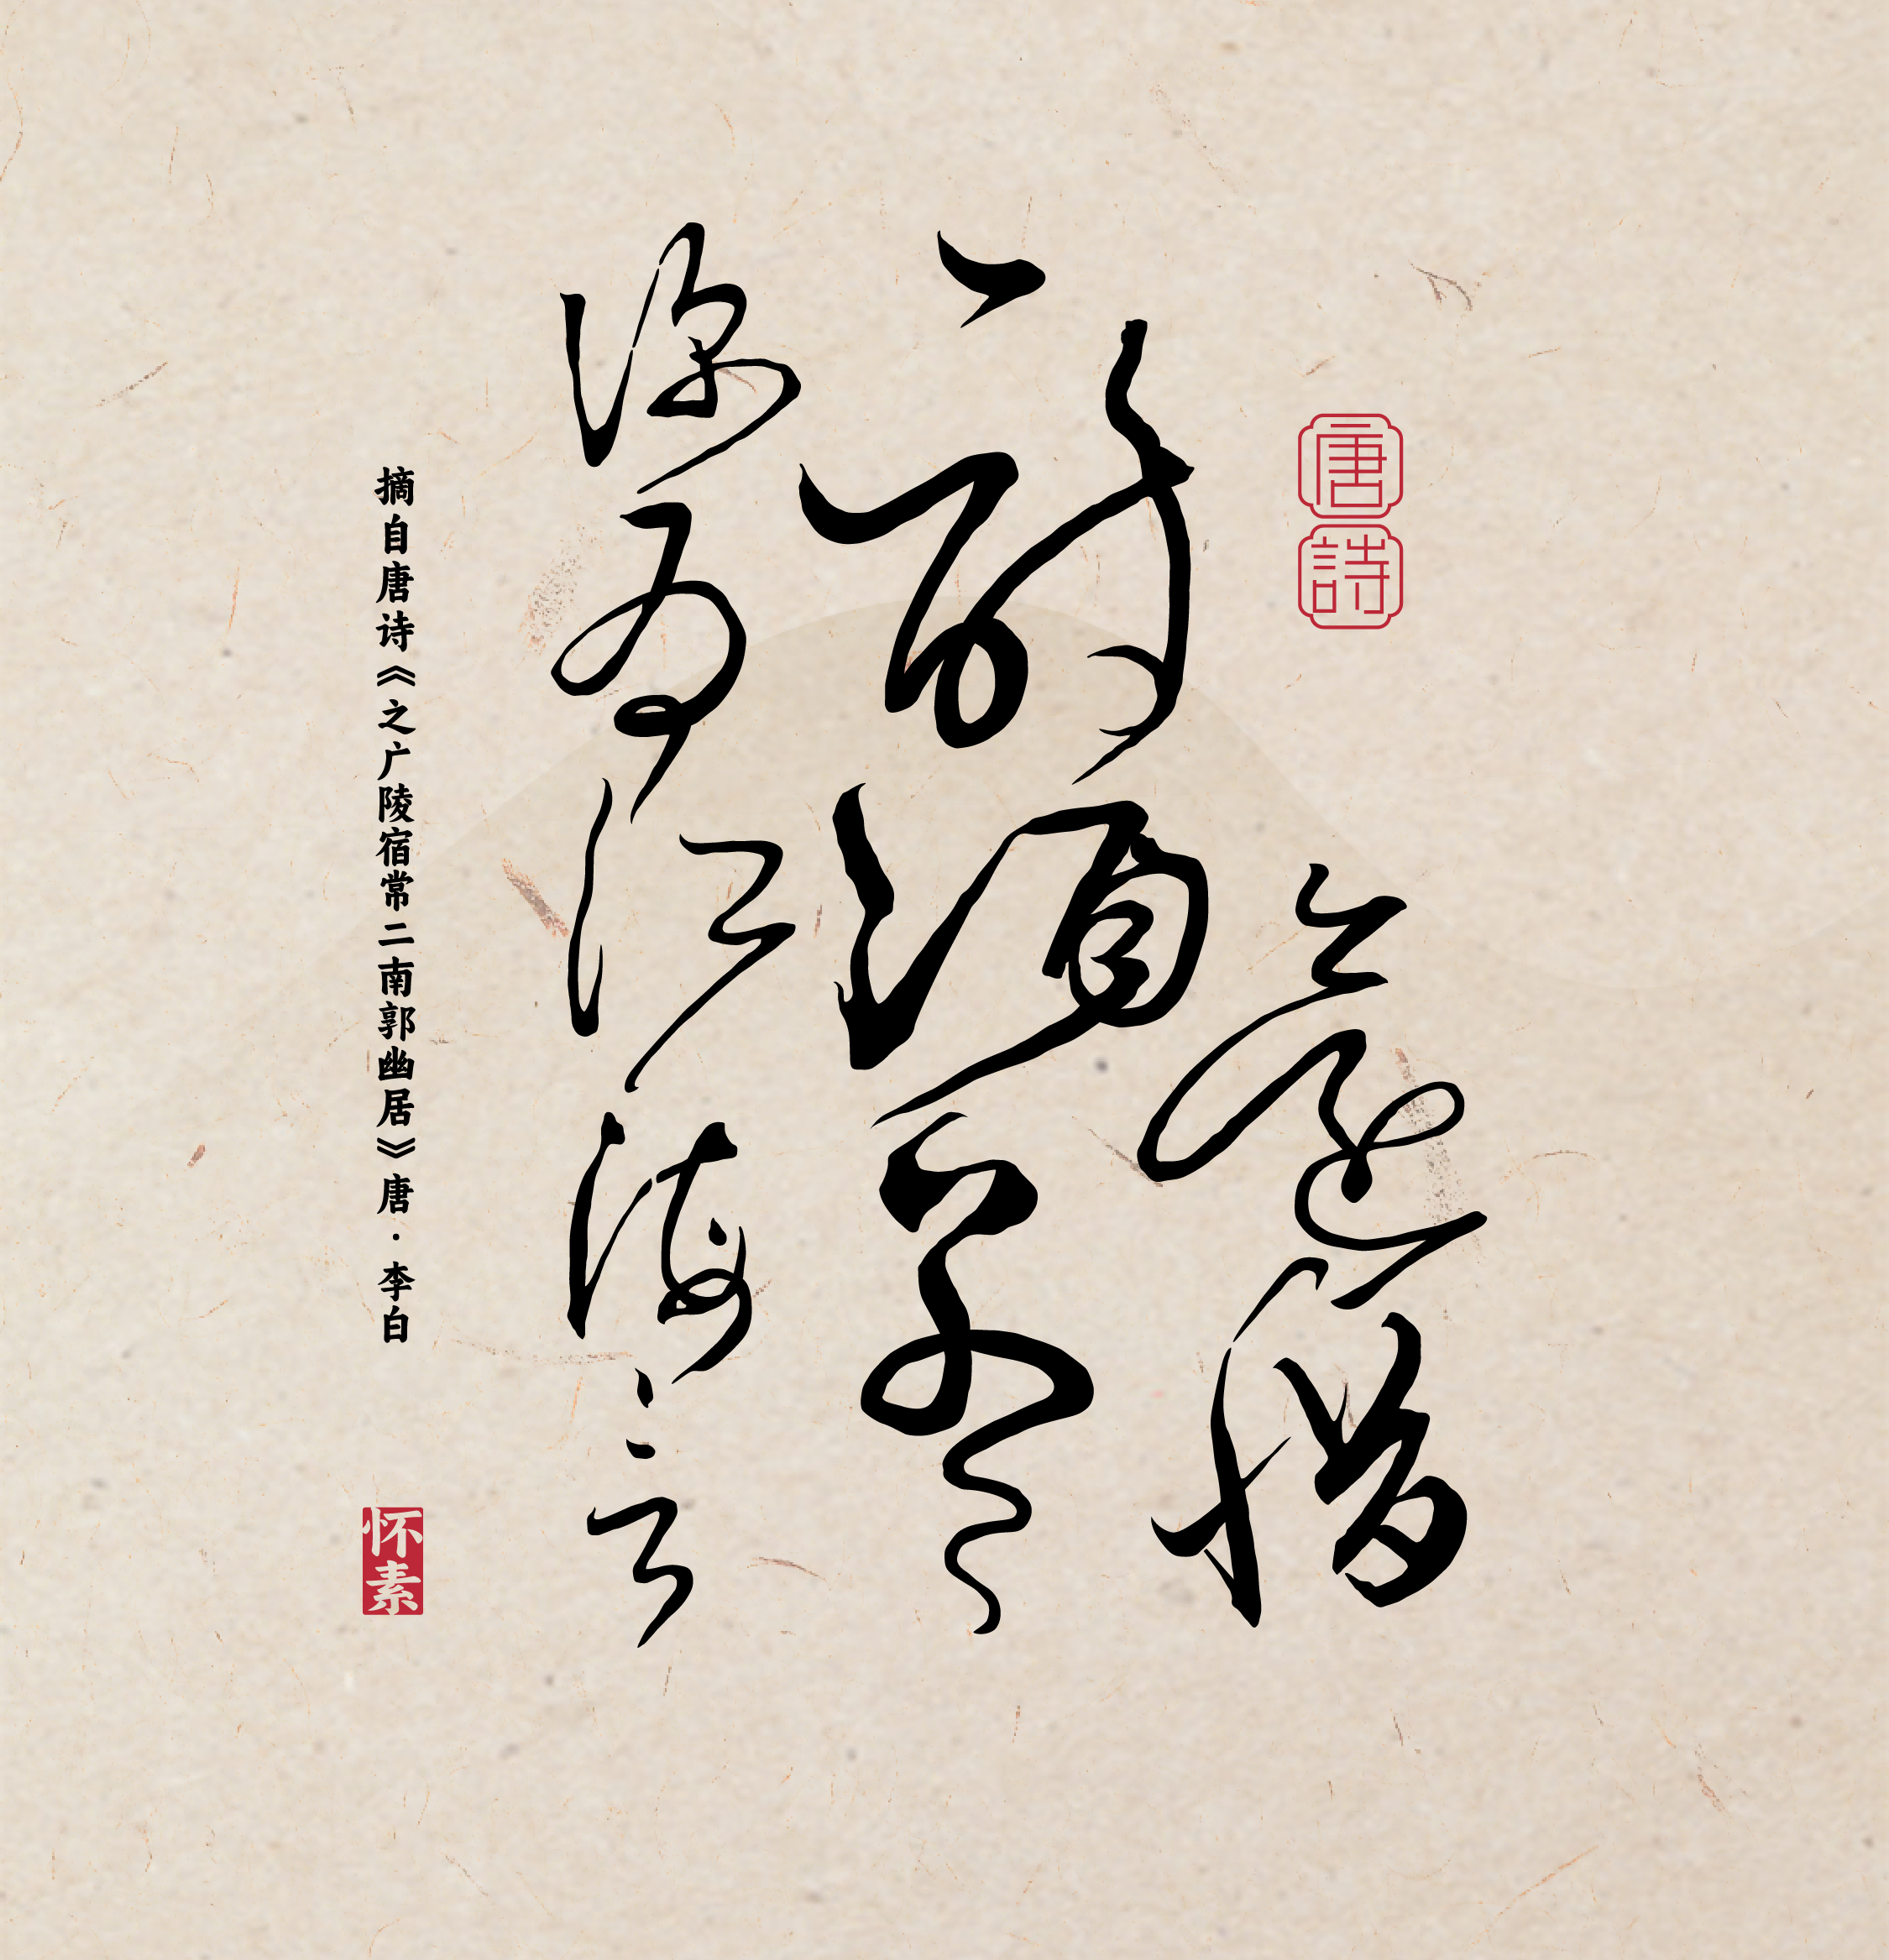 唐詩
還惜
詩酒別
深為江海言
摘自唐诗《之广陵宿常二南郭幽居》唐·李白
怀素